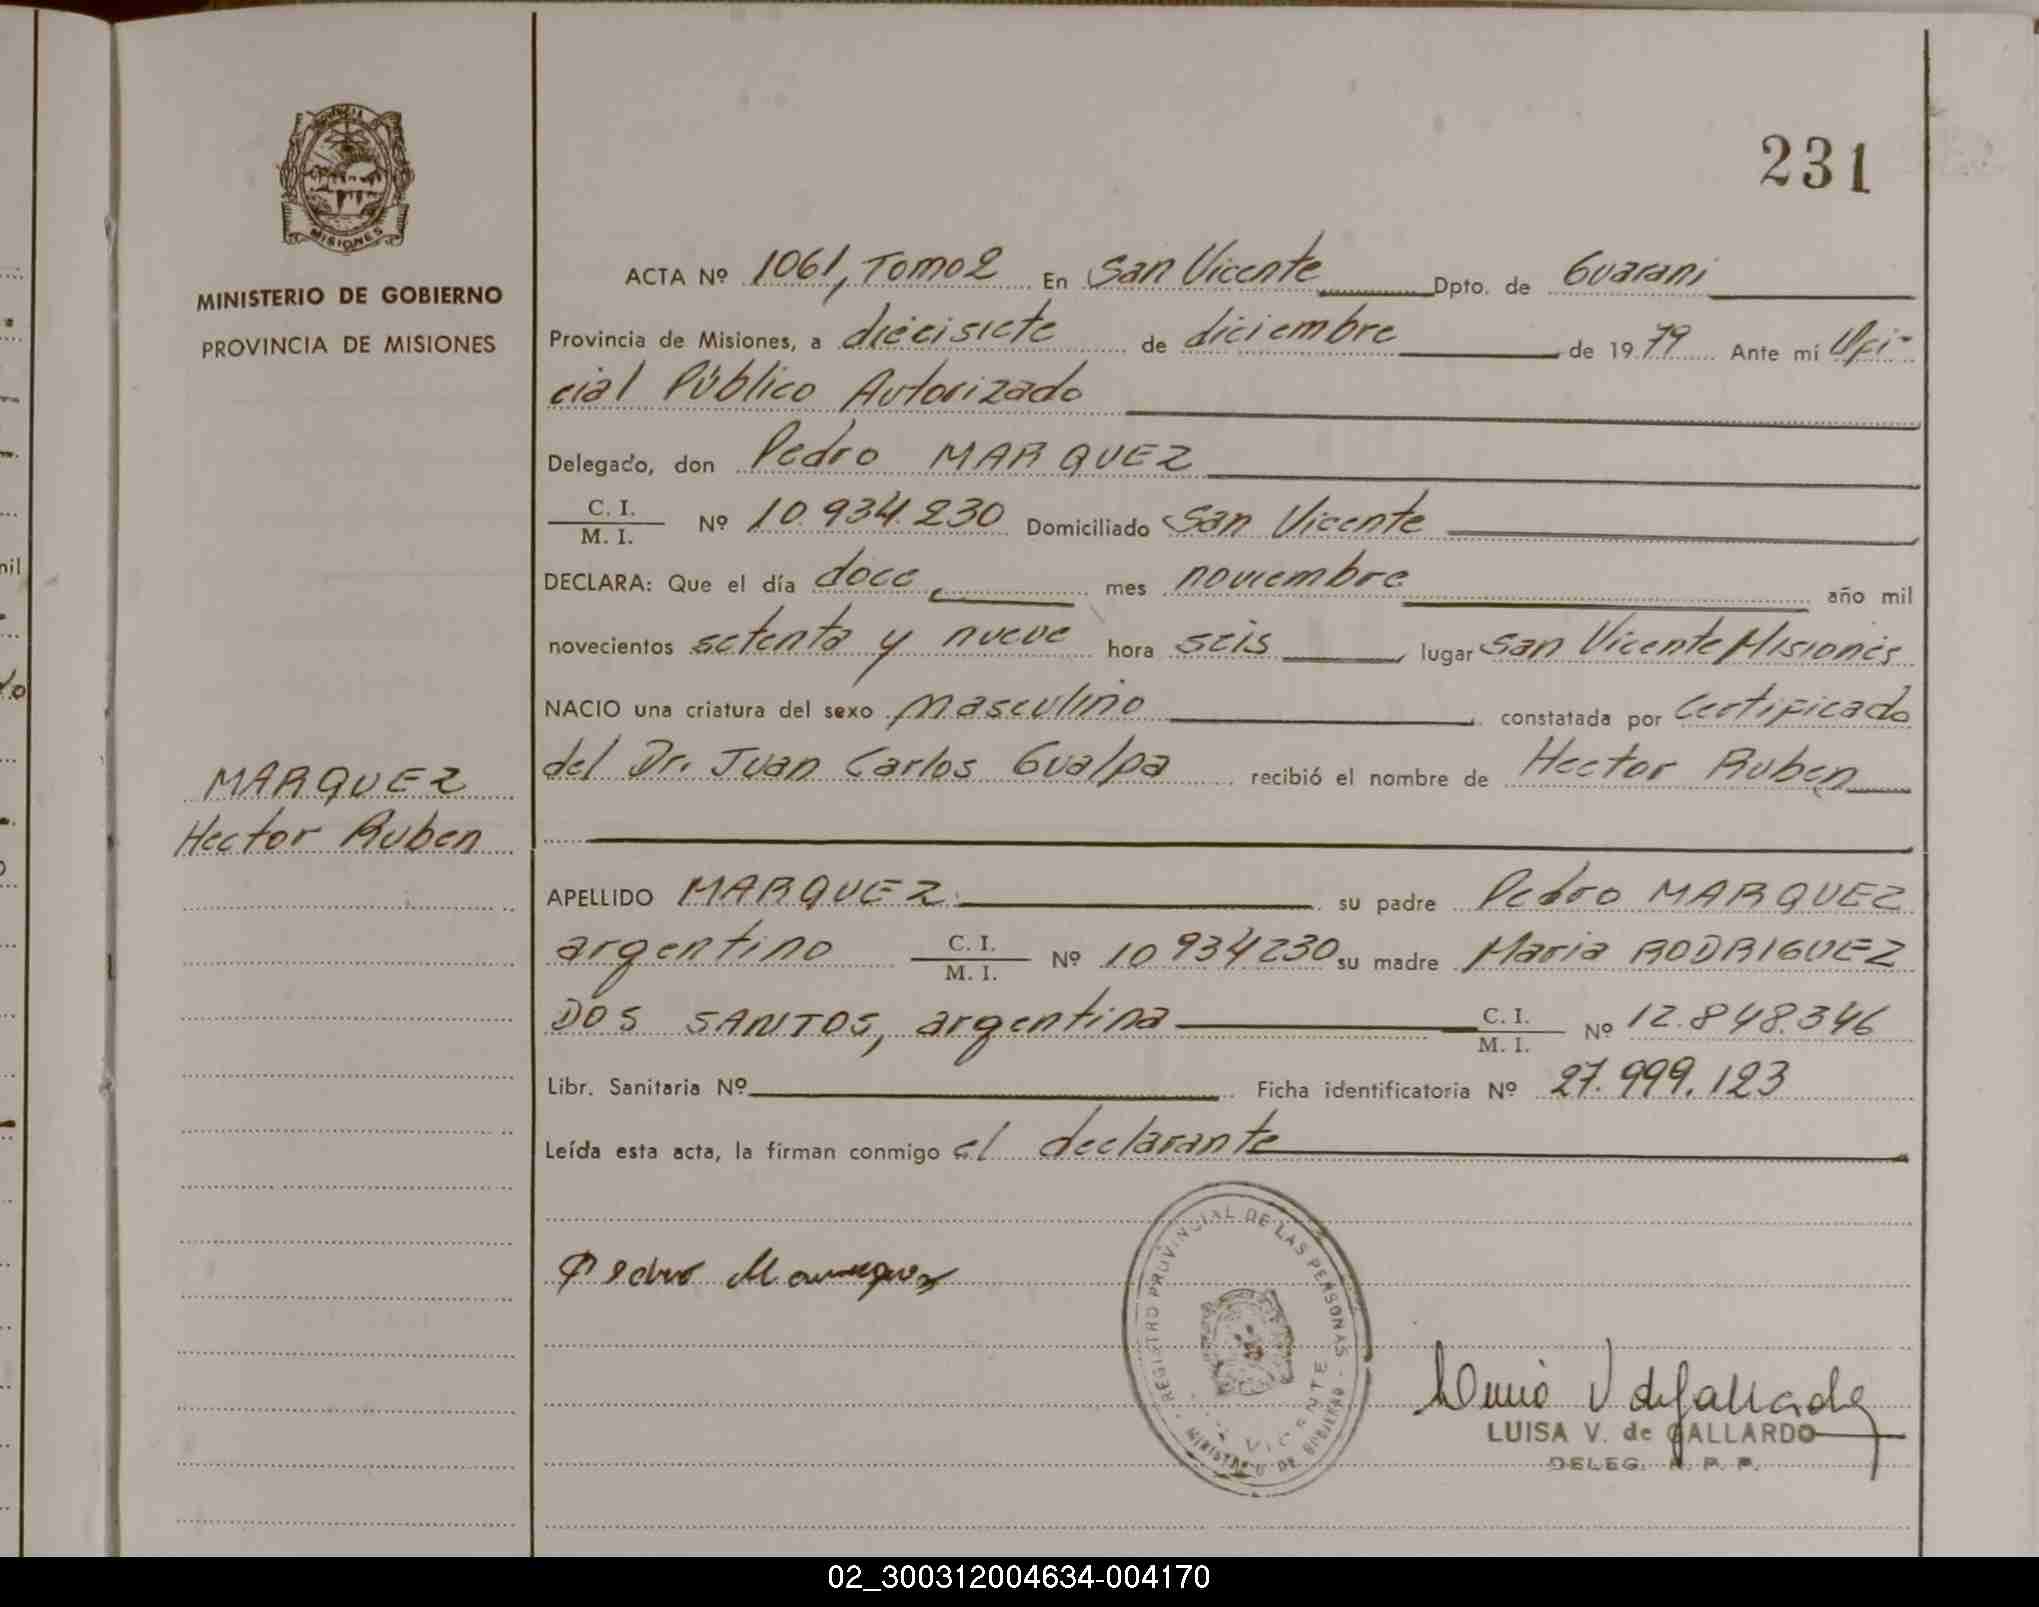 231
MISIONES
MINISTERIO DE GOBIERNO
PROVINCIA DE MISIONES
MARQUEZ
Hector Ruben
ACTA Nº 1061, Tomo 2 En San Vicente Dpto. de Guarani
Provincia de Misiones, a diecisiete de diciembre de 1979 Ante mí Ofi-
cial Público Autorizado
Delegado, don Pedro MARQUEZ
C. I.
M. I. Nº 10.934.230 Domiciliado San Vicente
DECLARA: Que el día doce mes noviembre año mil
novecientos setenta y nueve hora seis lugar San Vicente Misiones
NACIO una criatura del sexo masculino constatada por Certificado
del Dr. Juan Carlos Gualpa recibió el nombre de Hector Ruben
APELLIDO MARQUEZ su padre Pedro MARQUEZ
argentino C. I. M. I. Nº 10.934230 su madre Maria RODRIGUEZ
DOS SANTOS, argentina C. I. M. I. Nº 12.848.346
Libr. Sanitaria Nº Ficha identificatoria Nº 27.999.123
Leída esta acta, la firman conmigo el declarante
REGISTRO PROVINCIAL DE LAS PERSONAS
VICENTE
MINISTERIO DE GOBIERNO
Pedro Marquez
LUISA V. de GALLARDO
DELEG. R. P. P.
02_300312004634-004170